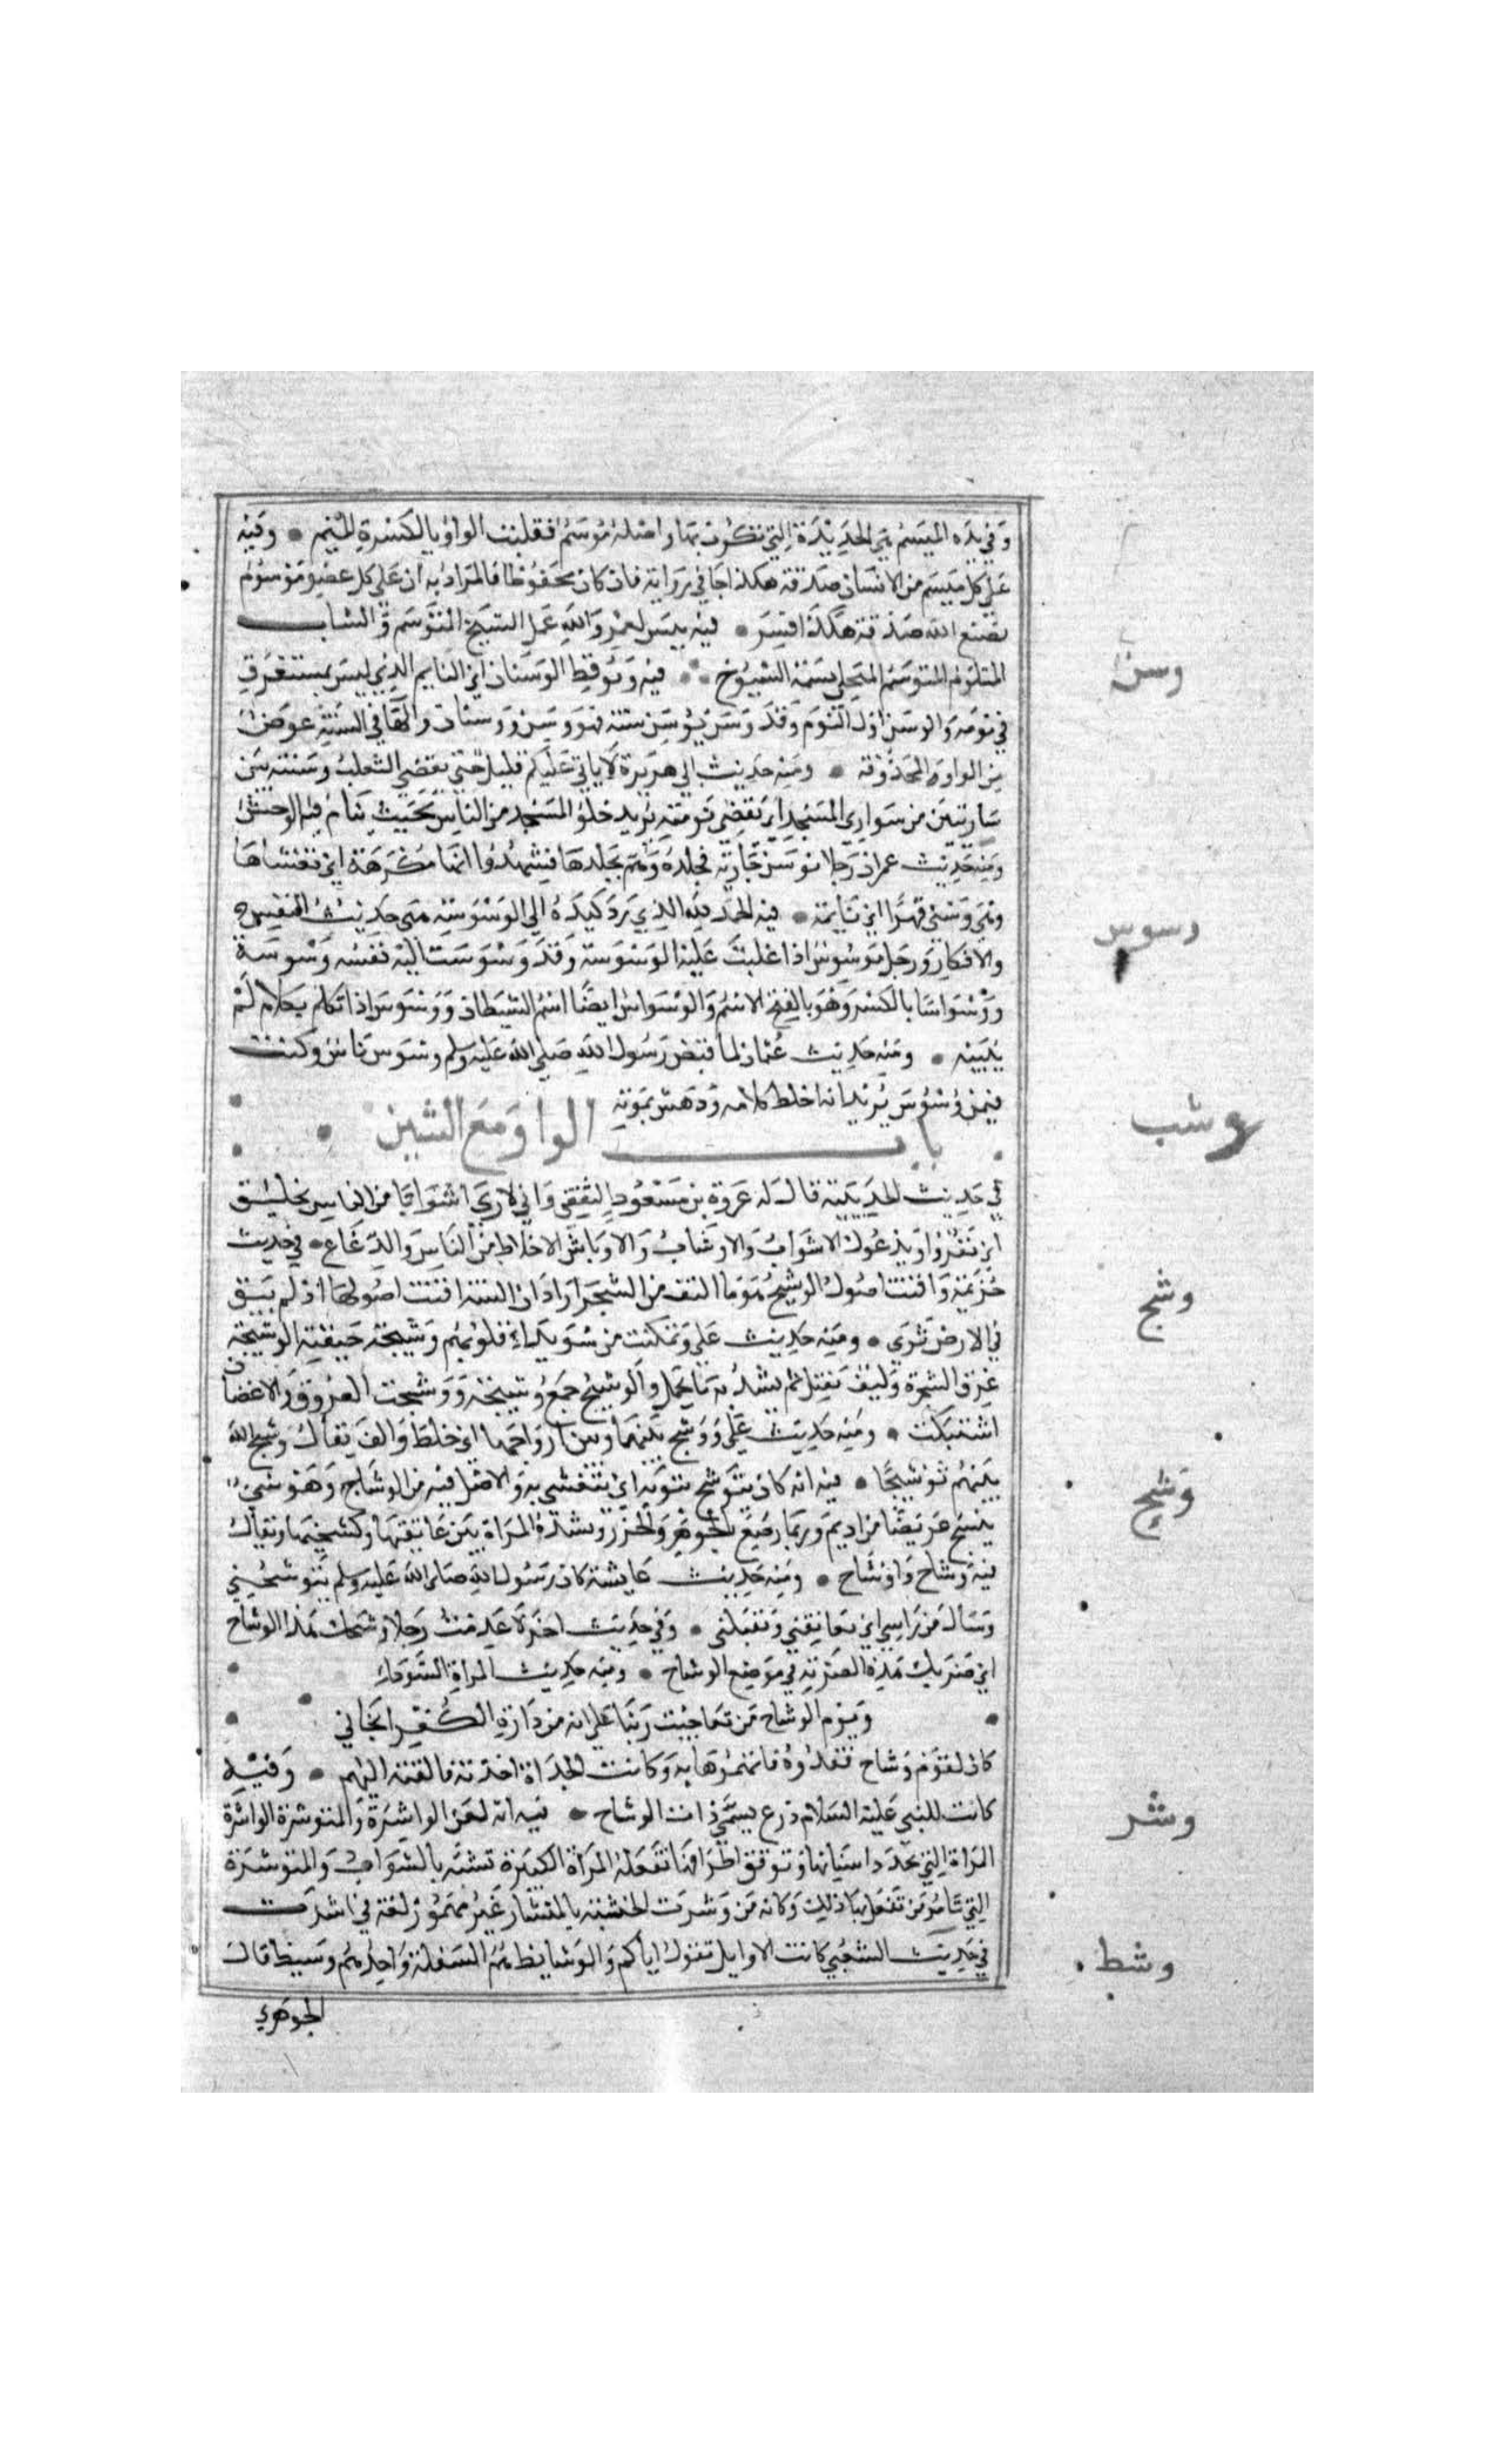 وفي يده الميسم هي الحديدة التي تكوى بها واصله موسم فقلبت الواو يا لكسرة الميم • وفيه
على كل ميسم من الانسان صدقة هكذا جا في رواية فان كان محفوظا فالمراد به ان على كل عضو موسوم
بصنع الله صدقة هكذا فسر • فيه بيس لعمر والله عمل الشيخ المتوسم والشاب
المتلوم المتوسم المتحلي بسمة الشيوخ • فيه وتوقظ الوسنان اي النايم الذي ليس بمستغرق
وسن
في نومه والوسن اول النوم وقد وسن يوسن سنة فهو وسن ووسنان والها في السنة عوض
من الواو المحذوفة • ومنه حديث ابي هريرة لا ياتي عليكم قليل حتى يقضي الثعلب وسنته بين
ساريتين من سواري المسجد اي يقضي نومته يريد خلو المسجد من الناس بحيث ينام فيه الوحش
ومنه حديث عمر ان رجلا توسن جارية فجلده وهم بجلدها فشهدوا انها مكرهة اي تغشاها
وهي وسنى قهرا اي نايمة • فيه الحمد لله الذي رد كيده الى الوسوسة هي حديث النفس
وسوس
والافكار ورجل موسوس اذا غلبت عليه الوسوسة وقد وسوست اليه نفسه وسوسة
ووسواسا بالكسر وهو بالفتح الاسم والوسواس ايضا اسم الشيطان ووسوس اذا تكلم بكلام لم
يبينه • ومنه حديث عثمان لما قبض رسول الله صلى الله عليه وسلم وسوس ناس وكنت
فيمن وسوس يريد انه اختلط كلامه ودهش بموته
باب الواو مع الشين
وشب
في حديث الحديبية قال له عروة بن مسعود الثقفي واني لارى اشوابا من الناس لخليق
ان يفروا ويدعوك الاشواب والاوشاب والاوباش الاخلاط من الناس والرعاع • في حديث
خزيمة وافنت اصول الوشيج هو ما التف من الشجر اراد ان السنة افنت اصولها اذ لم يبق
وشج
في الارض ثرى • ومنه حديث علي وتمكنت من سويداء قلوبهم وشيجة خيفته الوشيجة
عرق الشجرة وليف يفتل ثم يشد به ما يحمل والوشيج جمع وشيجة ووشجت العروق والاغصان
اشتبكت • ومنه حديث علي ووشج بينها وبين ازواجها اي خلط والف يقال وشج الله
بينهم توشيجا • فيه انه كان يتوشح بثوبه اي يتغشى به والاصل فيه من الوشاح وهو شيء
وشح
ينسج عريضا من اديم وربما رصع بالجوهر والخرز وتشده المراة بين عاتقها وكشحيها ويقال
فيه وشاح واوشاح • ومنه حديث عايشة كان رسول الله صلى الله عليه وسلم يتوشحني
وينال من راسي اي يعانقني ويقبلني • وفي حديث اخر لا عدمت رجلا وشحك هذا الوشاح
اي ضربك هذه الضربة في موضع الوشاح • ومنه حديث المراة السوداء
ويوم الوشاح من تعاجيب ربنا على انه من دارة الكفر انجاني
كان لقوم وشاح ففقدوه فاتهموها به وكانت الحداة اخذته فالقته اليهم • وفيه
كانت للنبي عليه السلام درع يسمى ذات الوشاح • فيه انه لعن الواشرة والموتشرة الواشرة
وشر
المراة التي تحدد اسنانها وترقق اطرافها تفعله المراة الكبيرة تتشبه بالشواب والموتشرة
التي تامر من تفعل بها ذلك وكانه من وشرت الخشبة بالميشار غير مهموز لغة في اشرت
في حديث الشعبي كانت الاوايل تقول اياكم والوشايظ هم السفلة واحدهم وشيظ قال
وشظ
الجوهري